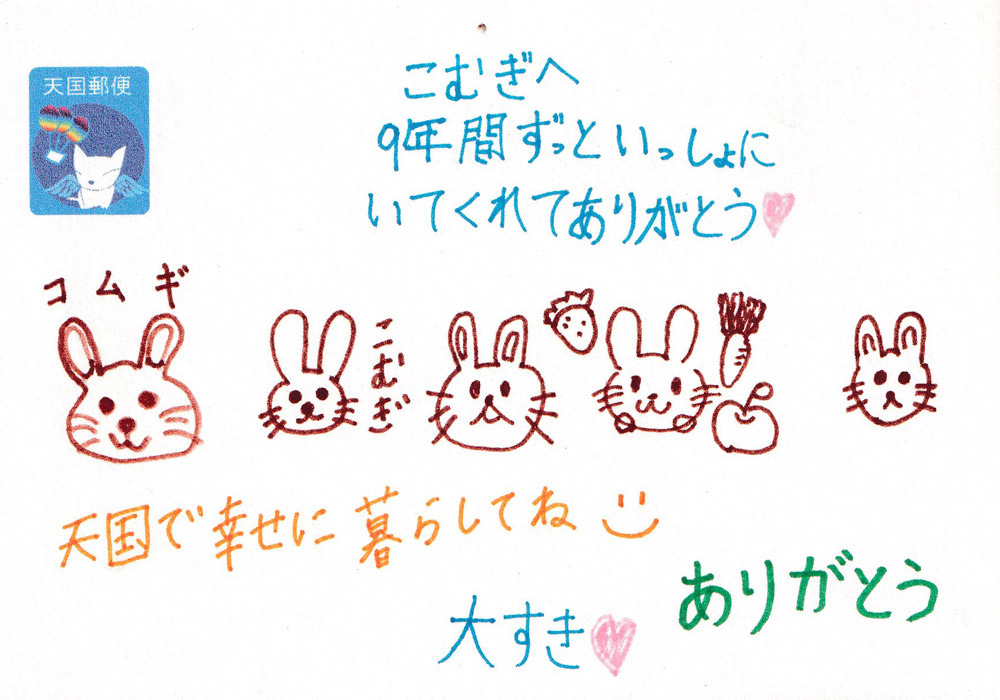 天国郵便
こむぎへ
9年間ずっといっしょに
いてくれてありがとう
コムギ
こむぎ
天国で幸せに暮らしてね
ありがとう
大すき